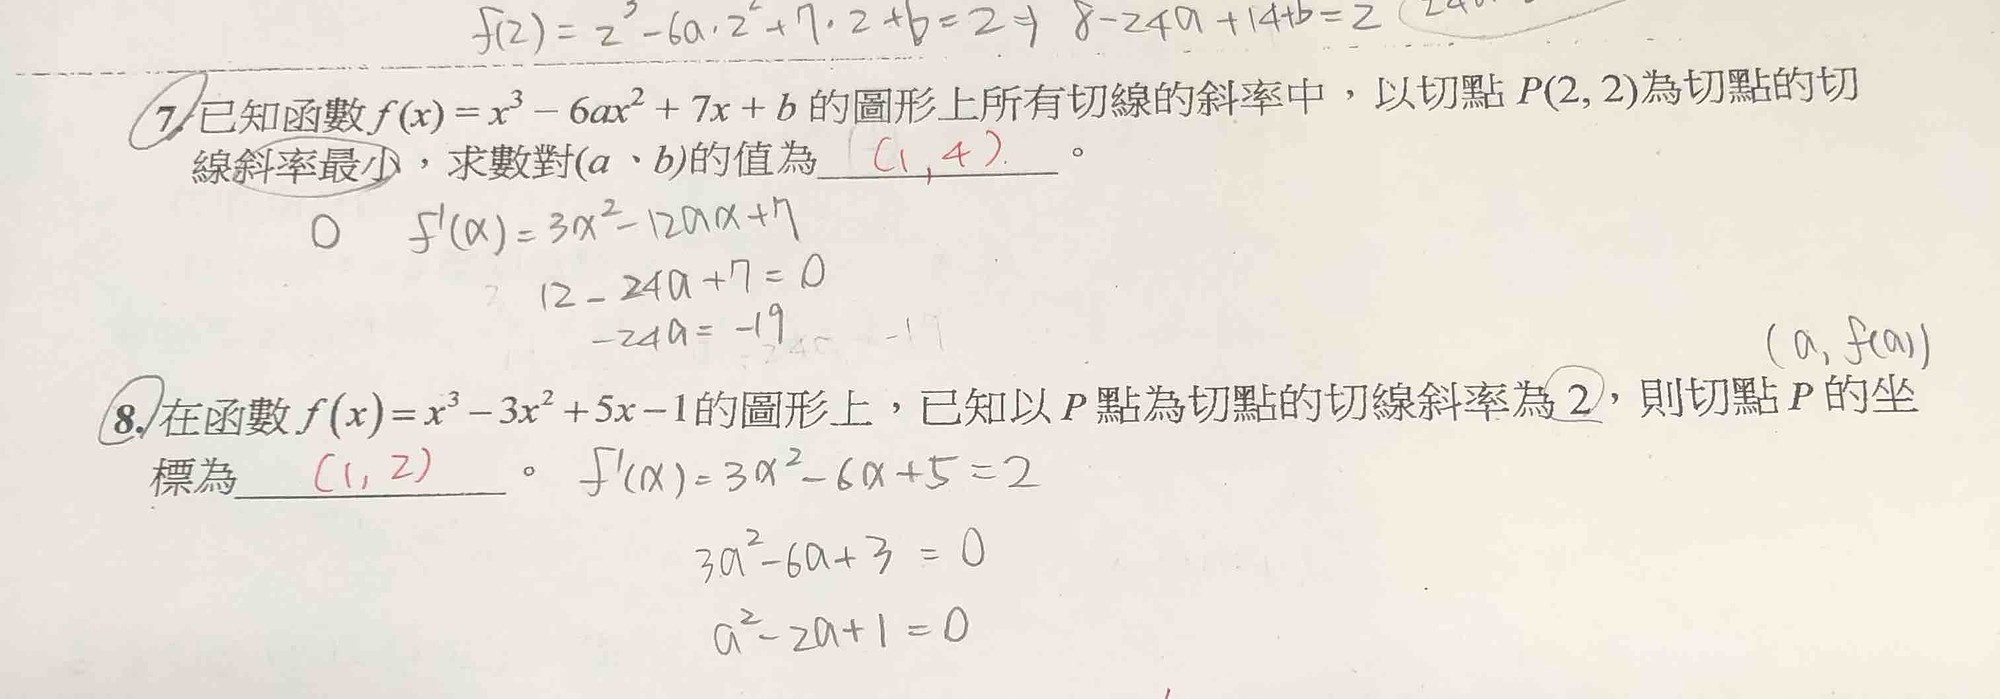 f(2) = 2³-6a·2²+7·2+b=2⇒ 8-24a+14+b=2
7. 已知函數 f(x) = x³ − 6ax² + 7x + b 的圖形上所有切線的斜率中，以切點 P(2, 2)為切點的切
線斜率最小，求數對(a、b)的值為 (1,4) 。
0 f'(x) = 3x²-12ax+7
12-24a+7=0
-24a=-19 -19
(a, f(a))
8. 在函數 f(x) = x³ − 3x² + 5x − 1的圖形上，已知以 P 點為切點的切線斜率為 2，則切點 P 的坐
標為 (1, 2) 。 f'(x) = 3x²-6x+5=2
3a²-6a+3 = 0
a²-2a+1=0